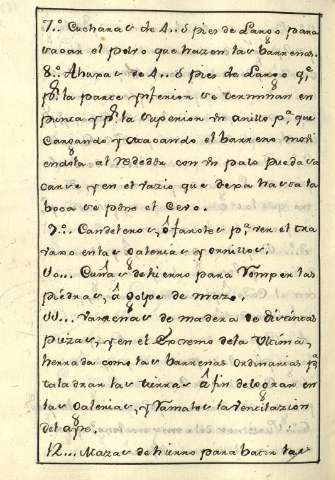 7.º Cucharas de 4.. ó pies de Largo para
sacar el polvo que hazen las barrenas.
8.º Ahujas de 4.. ó pies de Largo q.e
p.r la parte ynferior se terminan en
punta y p.r la superior un anillo p.a que
Cargando y atacando el barreno movi
endola al rededor con un palo pueda sa
carse y en el vazio que deja hasta la
boca se pone el Cevo.
9.º Candeleros, ó faroles p.a ver el tra
vaxo en las Galerias y ornillos.
10... Cuñas de hierro para Romper las
piedras, â golpe de mazo.
11... Varrenas de madera de distintas
piezas, y en el Extremo de la Ultima,
herrada como las Barrenas Ordinarias p.a
taladrar las tierras â fin de lograr en
las Galerias, y Ramales la ventilazion
del ayre.
12... Mazas de hierro para batir las